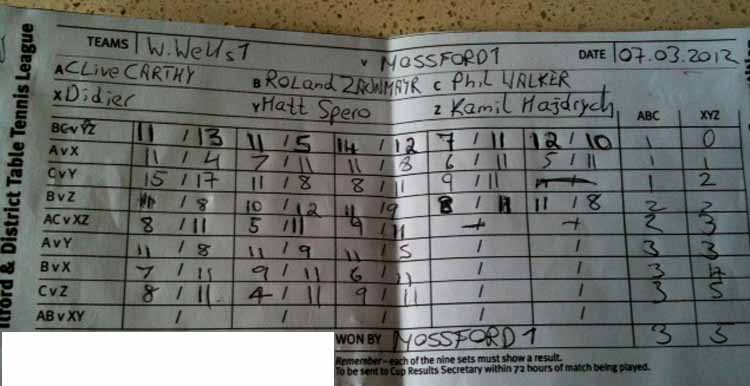 TEAMS W. Wells 1 v MOSSFORD 1 DATE 07.03.2012
A CLive CARTHY B ROLand C Phil WALKER
X Didier Y Matt Spero Z Kamil Hajdrych ABC XYZ
BC v YZ 11 / 13 11 / 5 14 / 12 7 / 11 12 / 10 1 0
A v X 11 / 4 7 / 11 11 / 8 6 / 11 5 / 11 1 1
C v Y 15 / 17 11 / 8 8 / 11 9 / 11 1 2
B v Z 11 / 8 10 / 12 11 / 9 8 / 11 11 / 8 2 2
AC v XZ 8 / 11 5 / 11 9 / 11 2 3
A v Y 11 / 8 11 / 9 11 / 5 / / 3 3
B v X 7 / 11 9 / 11 6 / 11 / / 3 4
C v Z 8 / 11 4 / 11 9 / 11 / / 3 5
AB v XY / / / / /
WON BY MOSSFORD 1 3 5
Remember – each of the nine sets must show a result.
To be sent to Cup Results Secretary within 72 hours of match being played.
& District Table Tennis League